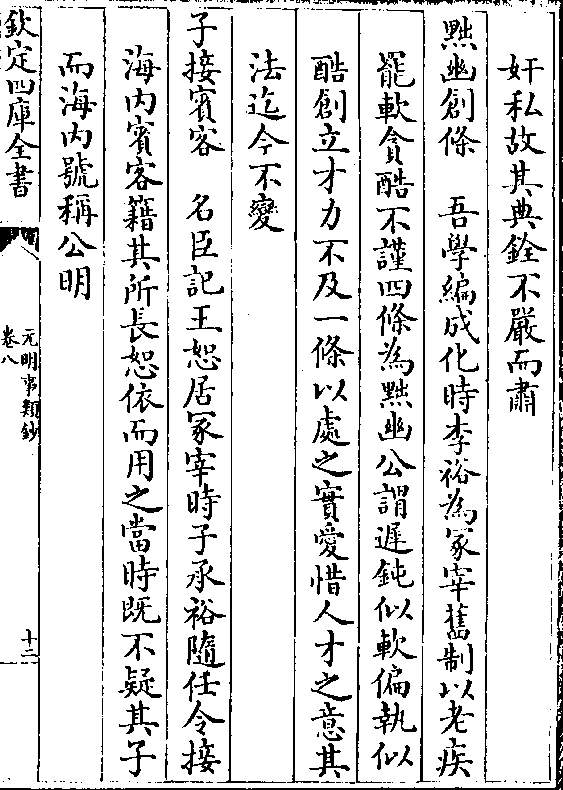 奸私故其典銓不嚴而肅
黜幽創條　吾學編成化時李裕為冢宰舊制以老疾
罷軟貪酷不謹四條為黜幽公謂遲鈍似軟偏執似
酷創立才力不及一條以處之實愛惜人才之意其
法迄今不變
子接賓客　名臣記王恕居冢宰時子承裕隨任令接
海内賓客籍其所長恕依而用之當時既不疑其子
而海内號稱公明
欽定四庫全書
元明事類鈔
卷八
十二